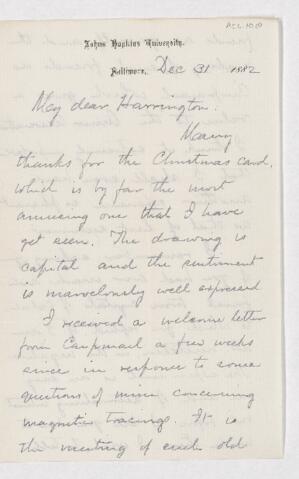 Johns Hopkins University,
Baltimore, Dec 31 1882
My dear Harrington.
Many
thanks for the Christmas card,
which is by far the most
amusing one that I have
yet seen. The drawing is
capital and the sentiment
is marvelously well expressed
I received a welcome letter
from Carpmael a few weeks
since in response to some
questions of mine concerning
magnetic tracings. It is
the meeting of such old